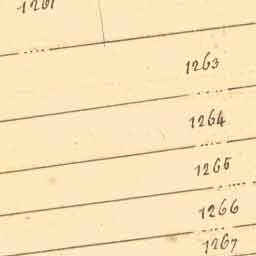 1261
1263
1264
1265
1266
1267